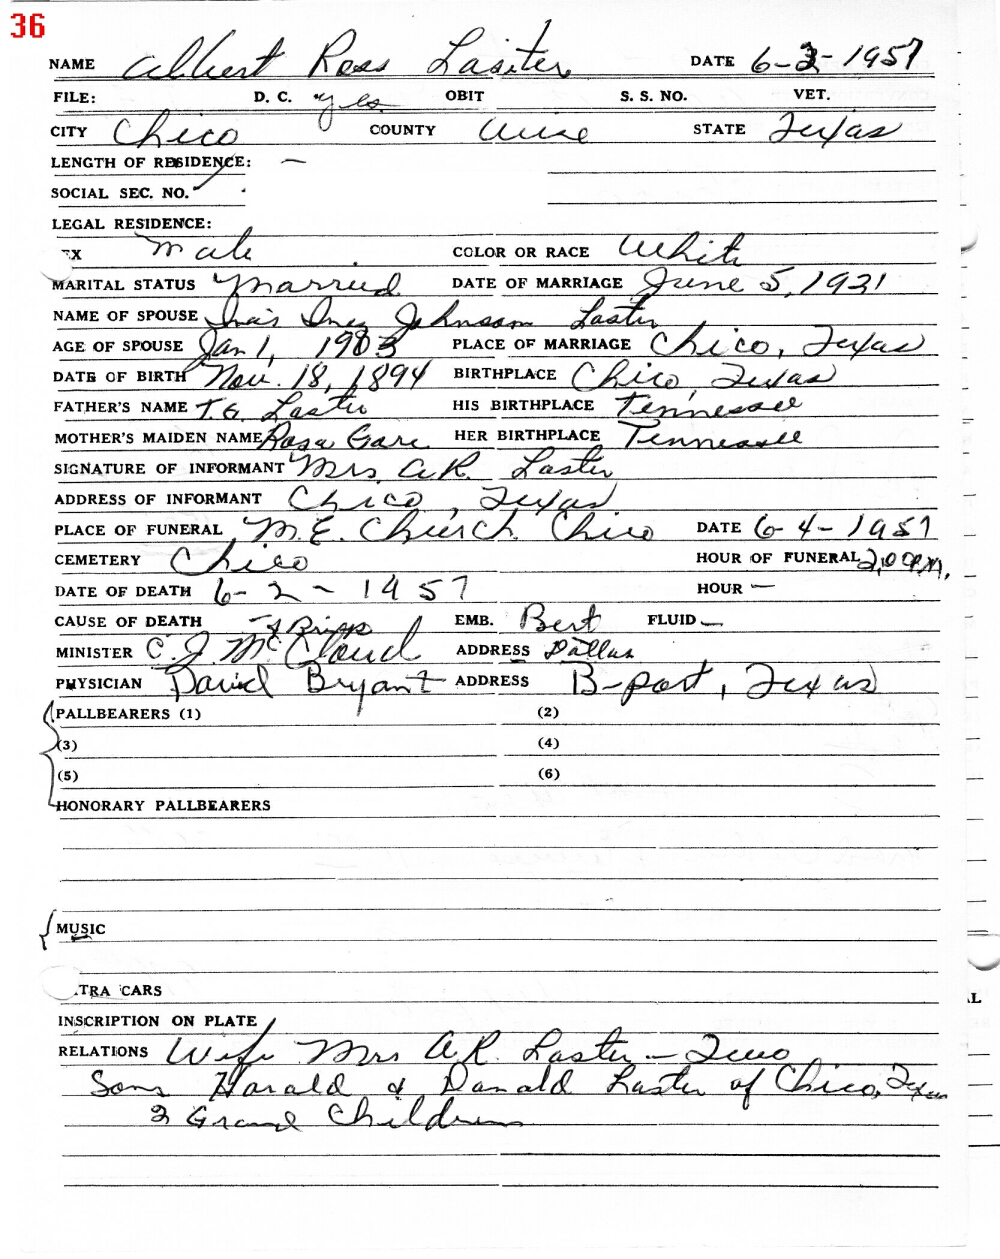 36
NAME Albert Ross Lasiter DATE 6-3-1957
FILE: D. C. yes OBIT S. S. NO. VET.
CITY Chico COUNTY Wise STATE Texas
LENGTH OF RESIDENCE: —
SOCIAL SEC. NO.
LEGAL RESIDENCE:
EX Male COLOR OR RACE White
MARITAL STATUS Married DATE OF MARRIAGE June 5, 1921
NAME OF SPOUSE Inez Johnson Laster
AGE OF SPOUSE Jan 1, 1903 PLACE OF MARRIAGE Chico, Texas
DATE OF BIRTH Nov. 18, 1894 BIRTHPLACE Chico, Texas
FATHER'S NAME T.G. Laster HIS BIRTHPLACE Tennessee
MOTHER'S MAIDEN NAME Rosa Gore HER BIRTHPLACE Tennessee
SIGNATURE OF INFORMANT Mrs. A.R. Laster
ADDRESS OF INFORMANT Chico, Texas
PLACE OF FUNERAL M.E. Church Chico DATE 6-4-1957
CEMETERY Chico HOUR OF FUNERAL 2:00 P.M.
DATE OF DEATH 6-2-1957 HOUR —
CAUSE OF DEATH EMB. Bert FLUID —
MINISTER C. J. McCloud ADDRESS Dallas
PHYSICIAN David Bryant ADDRESS B-port, Texas
PALLBEARERS (1) (2)
(3) (4)
(5) (6)
HONORARY PALLBEARERS
MUSIC
TRA CARS
INSCRIPTION ON PLATE
RELATIONS Wife Mrs A.R. Laster - Two
Sons Harald & Danald Laster of Chico, Texas
2 Grand Children